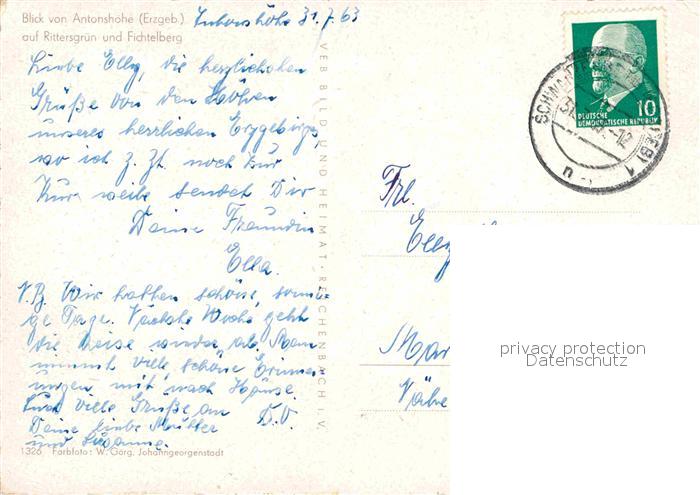 Blick von Antonshöhe (Erzgeb.)
auf Rittersgrün und Fichtelberg
Antonshöhe 31.7.63
Liebe Elly, die herzlichsten
Grüße von den Höhen
unseres herrlichen Erzgebirges,
wo ich z. Zt. noch zur
Kur weile sendet Dir
Deine Freundin
Ella.
N.B. Wir hatten schöne, sonni-
ge Tage. Nächste Woche geht
die Reise wieder ab. Man
nimmt viele schöne Erinner
ungen mit nach Hause.
Auch viele Grüße an
D.O.
Deine liebe Mutter
und Susanne.
1326 Farbfoto: W. Görg, Johanngeorgenstadt
VEB BILD UND HEIMAT · REICHENBACH I. V.
10
DEUTSCHE
DEMOKRATISCHE REPUBLIK
Frl.
Elly
Mar
privacy protection
Datenschutz